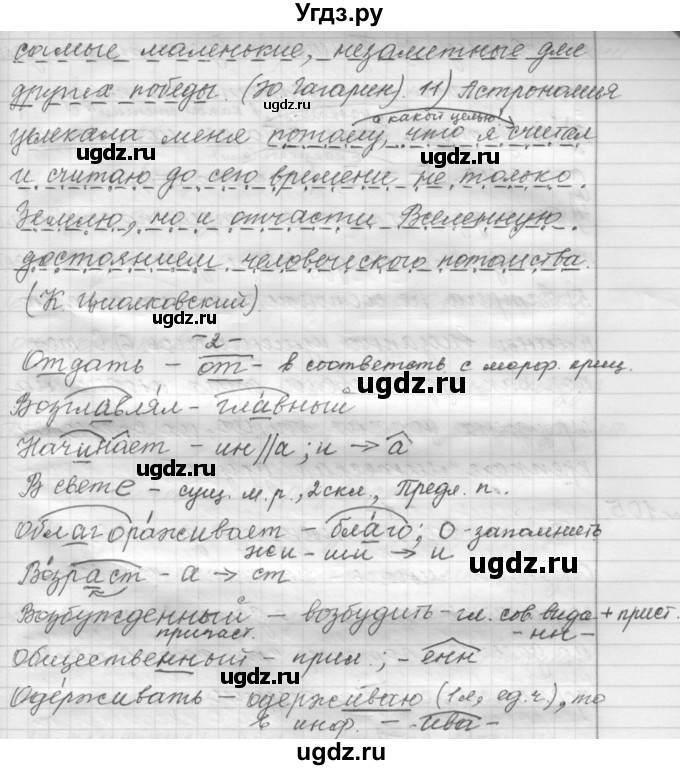 Угдз.ру
самые маленькие, незаметные для
других победы. (Ю. Гагарин). 11) Астрономия
в какой целью?
увлекала меня потому, что я считал
и считаю до сего времени не только
Землю, но и отчасти Вселенную
достоянием человеческого потомства.
(К. Циолковский)
-2-
Отдать – от- в соответств с морф. принц.
Возглавлял – главный
Начинает – ин//а; и → а
В свете – сущ. м.р., 2 скл., Предл. п..
Облагораживает – благо; О-запомнить
жи – ши → и
Возраст – а → ст
Возбужденный – возбудить – гл. сов. вида + прист.
прилаг. -нн-
Общественный – прил.; -енн
Одерживать – одерживаю (1 л, ед.ч), то
в инф. – -ива-
ugdz.ru
ugdz.ru
ugdz.ru
ugdz.ru
ugdz.ru
ugdz.ru
ugdz.ru
ugdz.ru
ugdz.ru
ugdz.ru
ugdz.ru
ugdz.ru
ugdz.ru
ugdz.ru